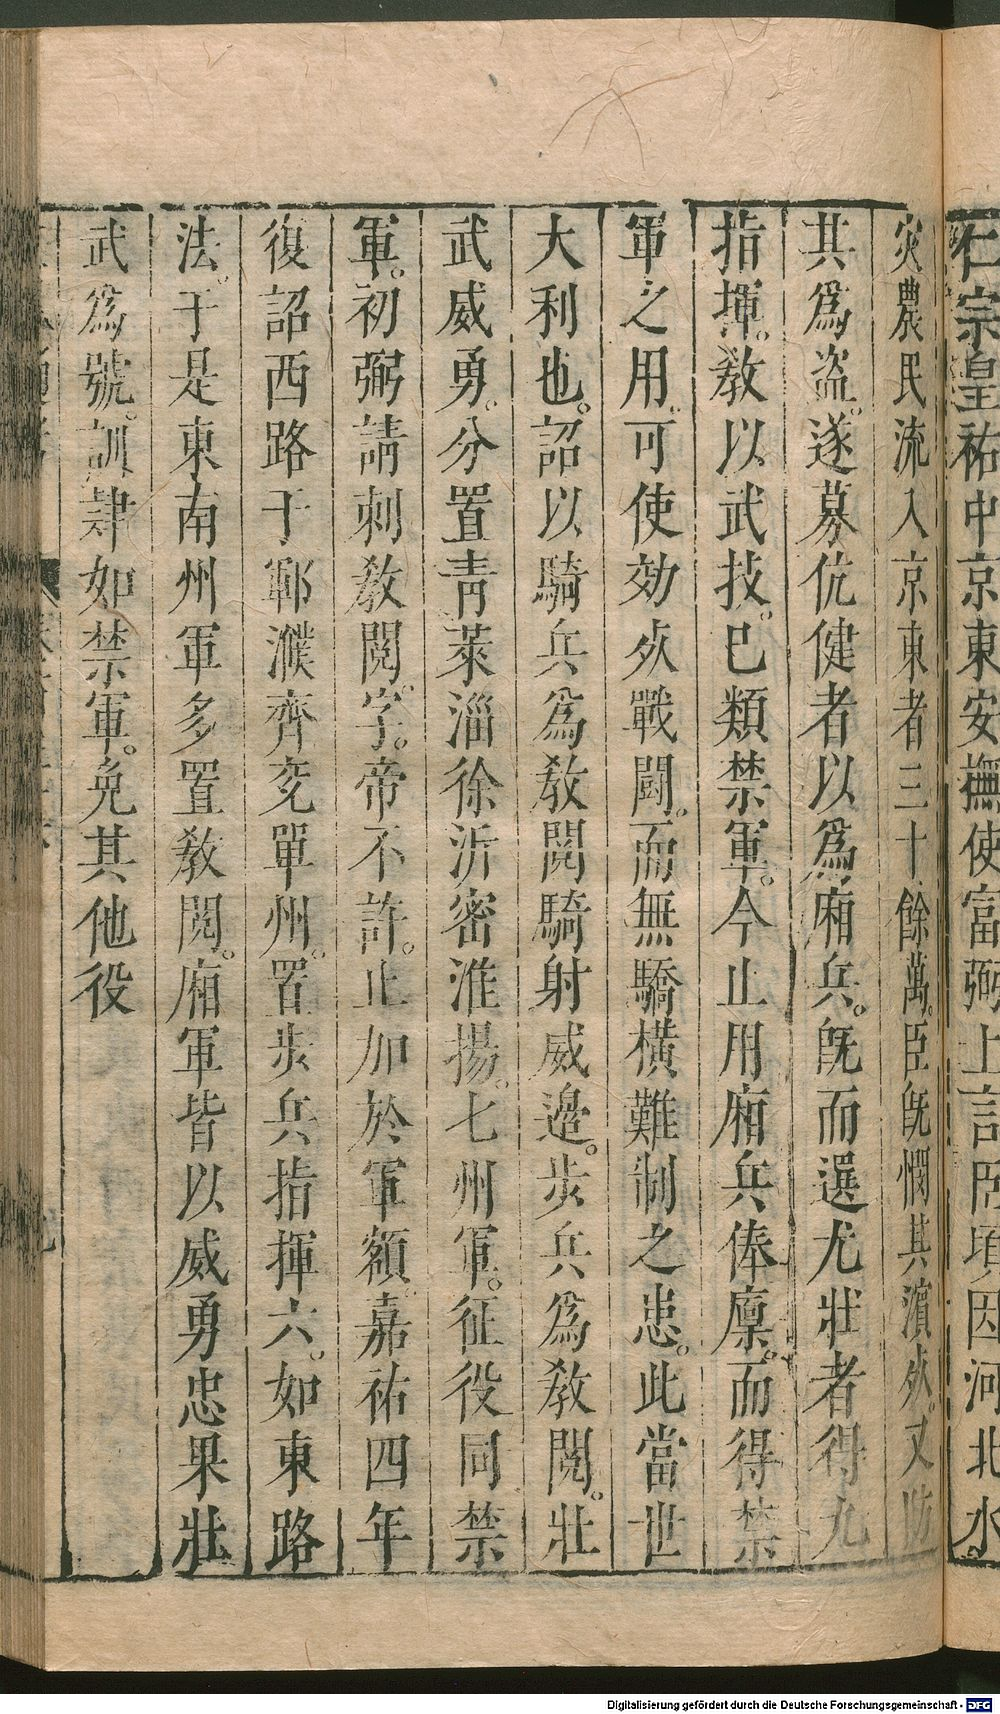 仁宗皇祐中京東安撫使富弼上言臣頃因河北水
災農民流入京東者三十餘萬。臣旣憫其濵死。又防
其爲盗。遂募伉健者以爲廂兵。旣而選尤壯者得九
指揮。教以武技。巳類禁軍。今止用廂兵俸廪。而得禁
軍之用。可使効死戰鬪。而無驕橫難制之患。此當世
大利也。詔以騎兵爲教閱騎射威邊。步兵爲教閱。壯
武威勇。分置靑萊淄徐沂密淮揚。七州軍。征役同禁
軍。初弼請刺教閱。字。帝不許。止加於軍額。嘉祐四年
復詔西路于鄆濮齊兖單州。置步兵指揮六。如東路
法。于是東南州軍多置教閱。廂軍皆以威勇忠果壯
武爲號。訓肄如禁軍。免其他役
Digitalisierung gefördert durch die Deutsche Forschungsgemeinschaft - DFG